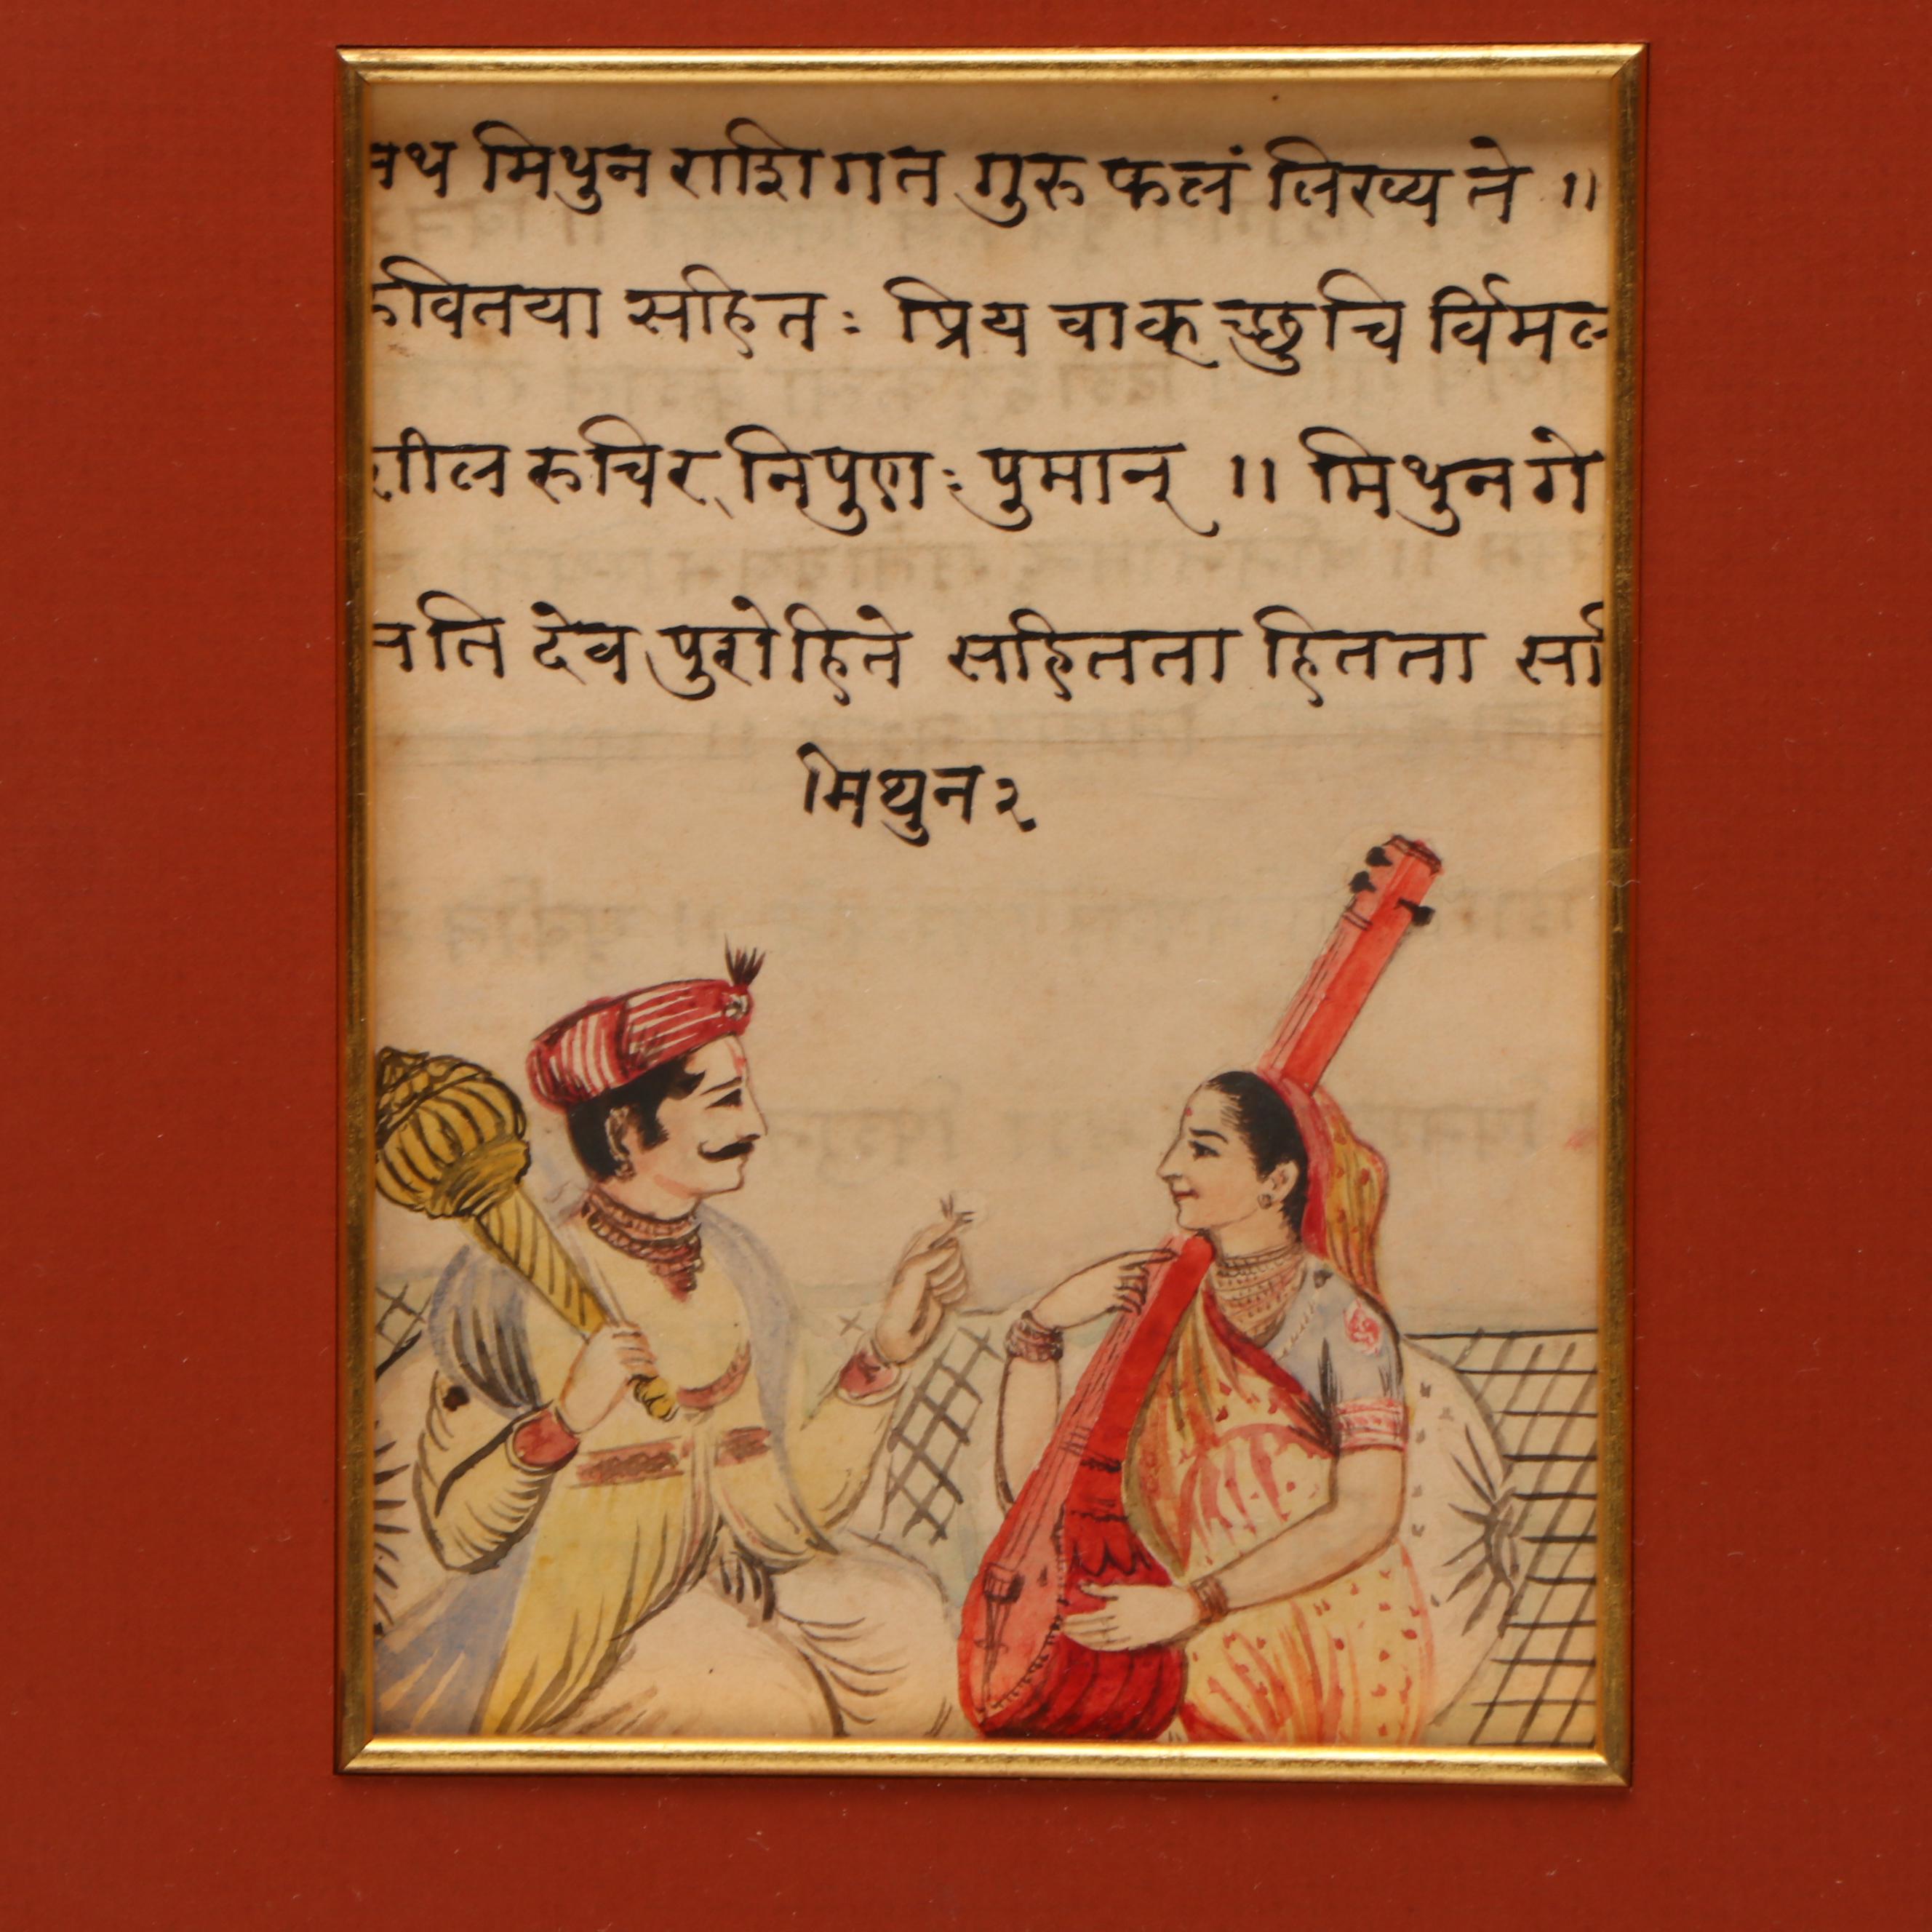 अथ मिथुन राशि गत गुरु फलं लिख्य ते ॥
कवितया सहितः प्रिय वाक् च्छुचि र्विमल
शील रुचिर् निपुणः पुमान् ॥ मिथुन गे
सति देव पुरोहिते सहितता हितता
मिथुन ३